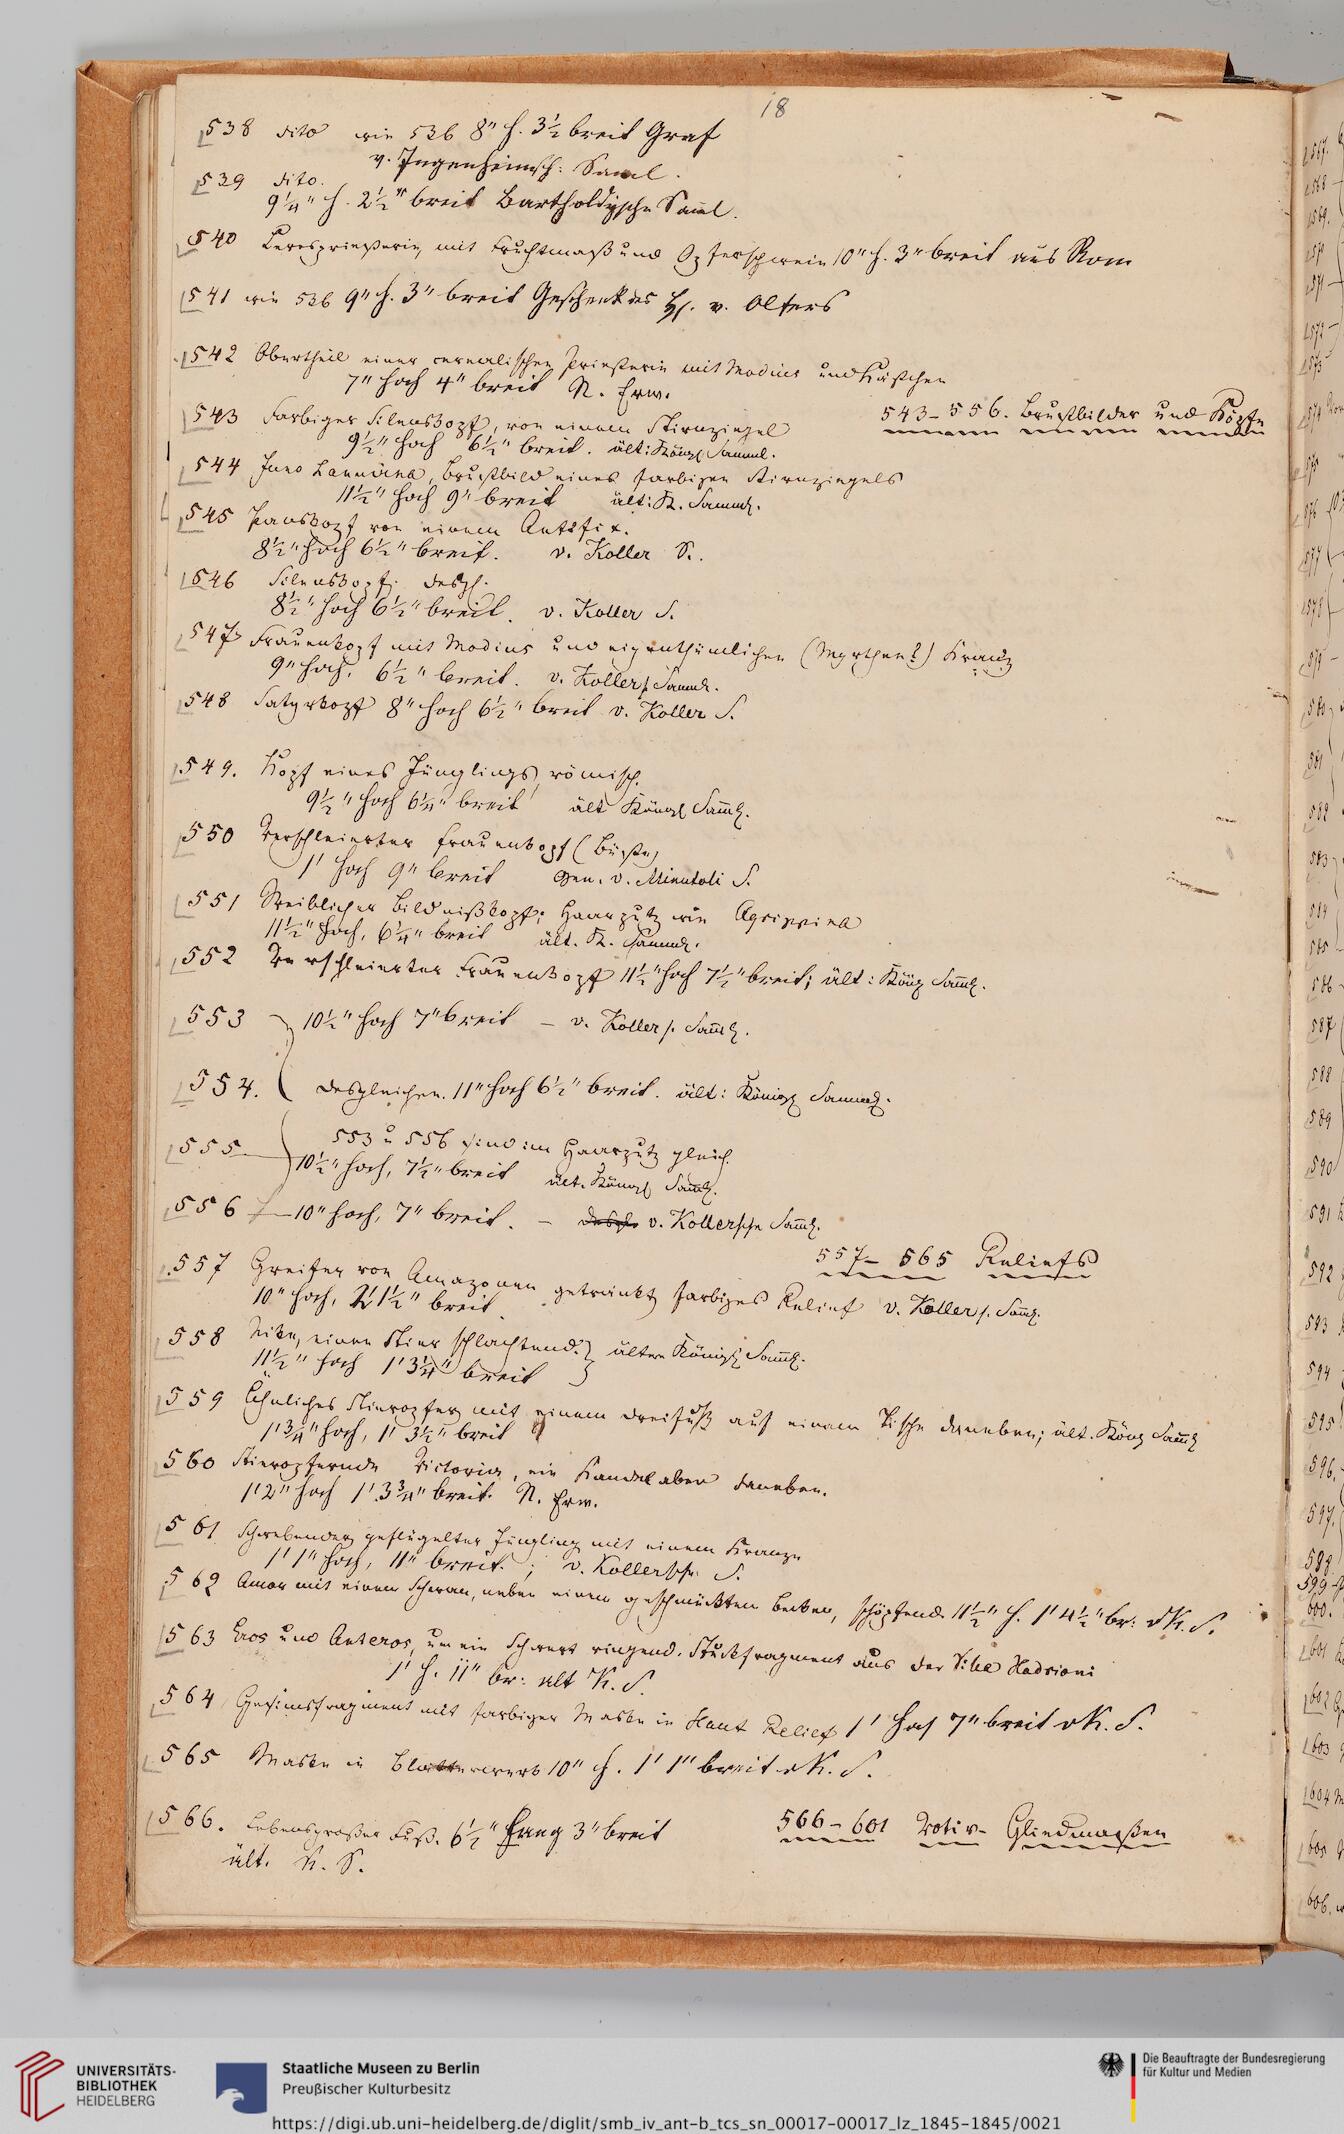 18
538 dito wie 536 8" h. 3½ breit Graf
v. Ingenheimsch: Saml.
539 dito.
9¼" h. 2½" breit Bartholdysche Saml.
540 Ceresprießterin, mit Fruchtmaß und Opferschwein 10" h. 3" breit aus Rom
541 wie 536 9" h. 3" breit Geschenk des H. v. Olfers
542 Obertheil einer cerealischen Prießterin mit Modius und Kästchen
7" hoch 4" breit N. Erw.
543–556. Brustbilder und Köpfe
543 Farbiger Silenskopf, von einem Stirnziegel
9½" hoch 6½" breit. ält: Königl Samml.
544 Juno Lanuvina, Brustbild eines farbigen Stirnziegels
11½" hoch 9" breit ält: K. Samml.
545 Panskopf von einem Antefix.
8½" hoch 6½" breit. v. Koller S.
546 Silenskopf: desgl.
8½" hoch 6½" breit. v. Koller S.
547 Frauenkopf mit Modius und eigenthümlichen (Myrthen?) Kranz
9" hoch, 6½" breit. v. Koller s. Samml.
548 Satyrkopf 8" hoch 6½" breit v. Koller S.
549. Kopf eines Jünglings, römisch.
9½" hoch 6¼" breit ält Königl Samml.
550 Verschleierter Frauenkopf (Büste)
1' hoch 9" breit Gen. v. Minutoli S.
551 Weiblicher Bildnißkopf; Haarputz wie Agrippina
11½" hoch, 6¼" breit ält. K. Samml.
552 Verschleierter Frauenkopf 11½" hoch 7½" breit; ält: König Samml.
553 10½" hoch 7" breit – v. Koller s. Samml.
554. desgleichen. 11" hoch 6½" breit. ält: Königl Samml.
553 u 556 sind im Haarputz gleich.
555 10½" hoch, 7½" breit ält. Königl Samml.
556 10" hoch, 7" breit. – v. Kollersche Samml.
557–565 Reliefs
557 Greifen von Amazonen getränkt, farbiges Relief v. Koller s. Samml.
10" hoch, 1½" breit
558 Nike, einen Stier schlachtend. ältere Königl Samml.
11½" hoch 1' 3¼" breit
559 Ähnliches Stieropfer mit einem Dreifuß auf einem Tische daneben; ält. König Samml
1' ¾" hoch, 1' 3½" breit
560 Stieropfernde Victoria, ein Kandelaber daneben.
1' 2" hoch 1' 3¾" breit. N. Erw.
561 Schwebender geflügelter Jüngling mit einem Kranze
1' 1" hoch, 11" breit.; v. Kollersche S.
562 Amor mit einem Schwan, neben einem geschmückten Becken, schöpfend. 11½" h. 1' 4½" br: v K. S.
563 Eros und Anteros, um ein Schwert ringend. Stuckfragment aus der Villa Hadriani
1' h. 11" br: alt K. S.
564 Gesimsfragment mit farbiger Maske in Haut Relief 1' hoch 7" breit v K. S.
565 Maske in Blätterwerk 10" h. 1' 1" breit v K. S.
566–601 Votiv-Gliedmaaßen
566. Lebensgroßer Fuß. 6½" lang 3" breit
ält. K. S.
UNIVERSITÄTS-
BIBLIOTHEK
HEIDELBERG
Staatliche Museen zu Berlin
Preußischer Kulturbesitz
Die Beauftragte der Bundesregierung
für Kultur und Medien
https://digi.ub.uni-heidelberg.de/diglit/smb_iv_ant-b_tcs_sn_00017-00017_lz_1845-1845/0021